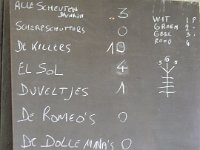 ALLE SCHEUTEN 3
SCHERPSCHUTTERS 0
DE KILLERS 10
EL SOL 4
DUVELTJES 1
DE ROMEO'S 0
DE DOLLE MINA'S 0
WIT 1 P
GROEN 2
GEEL 3
ROOD 4